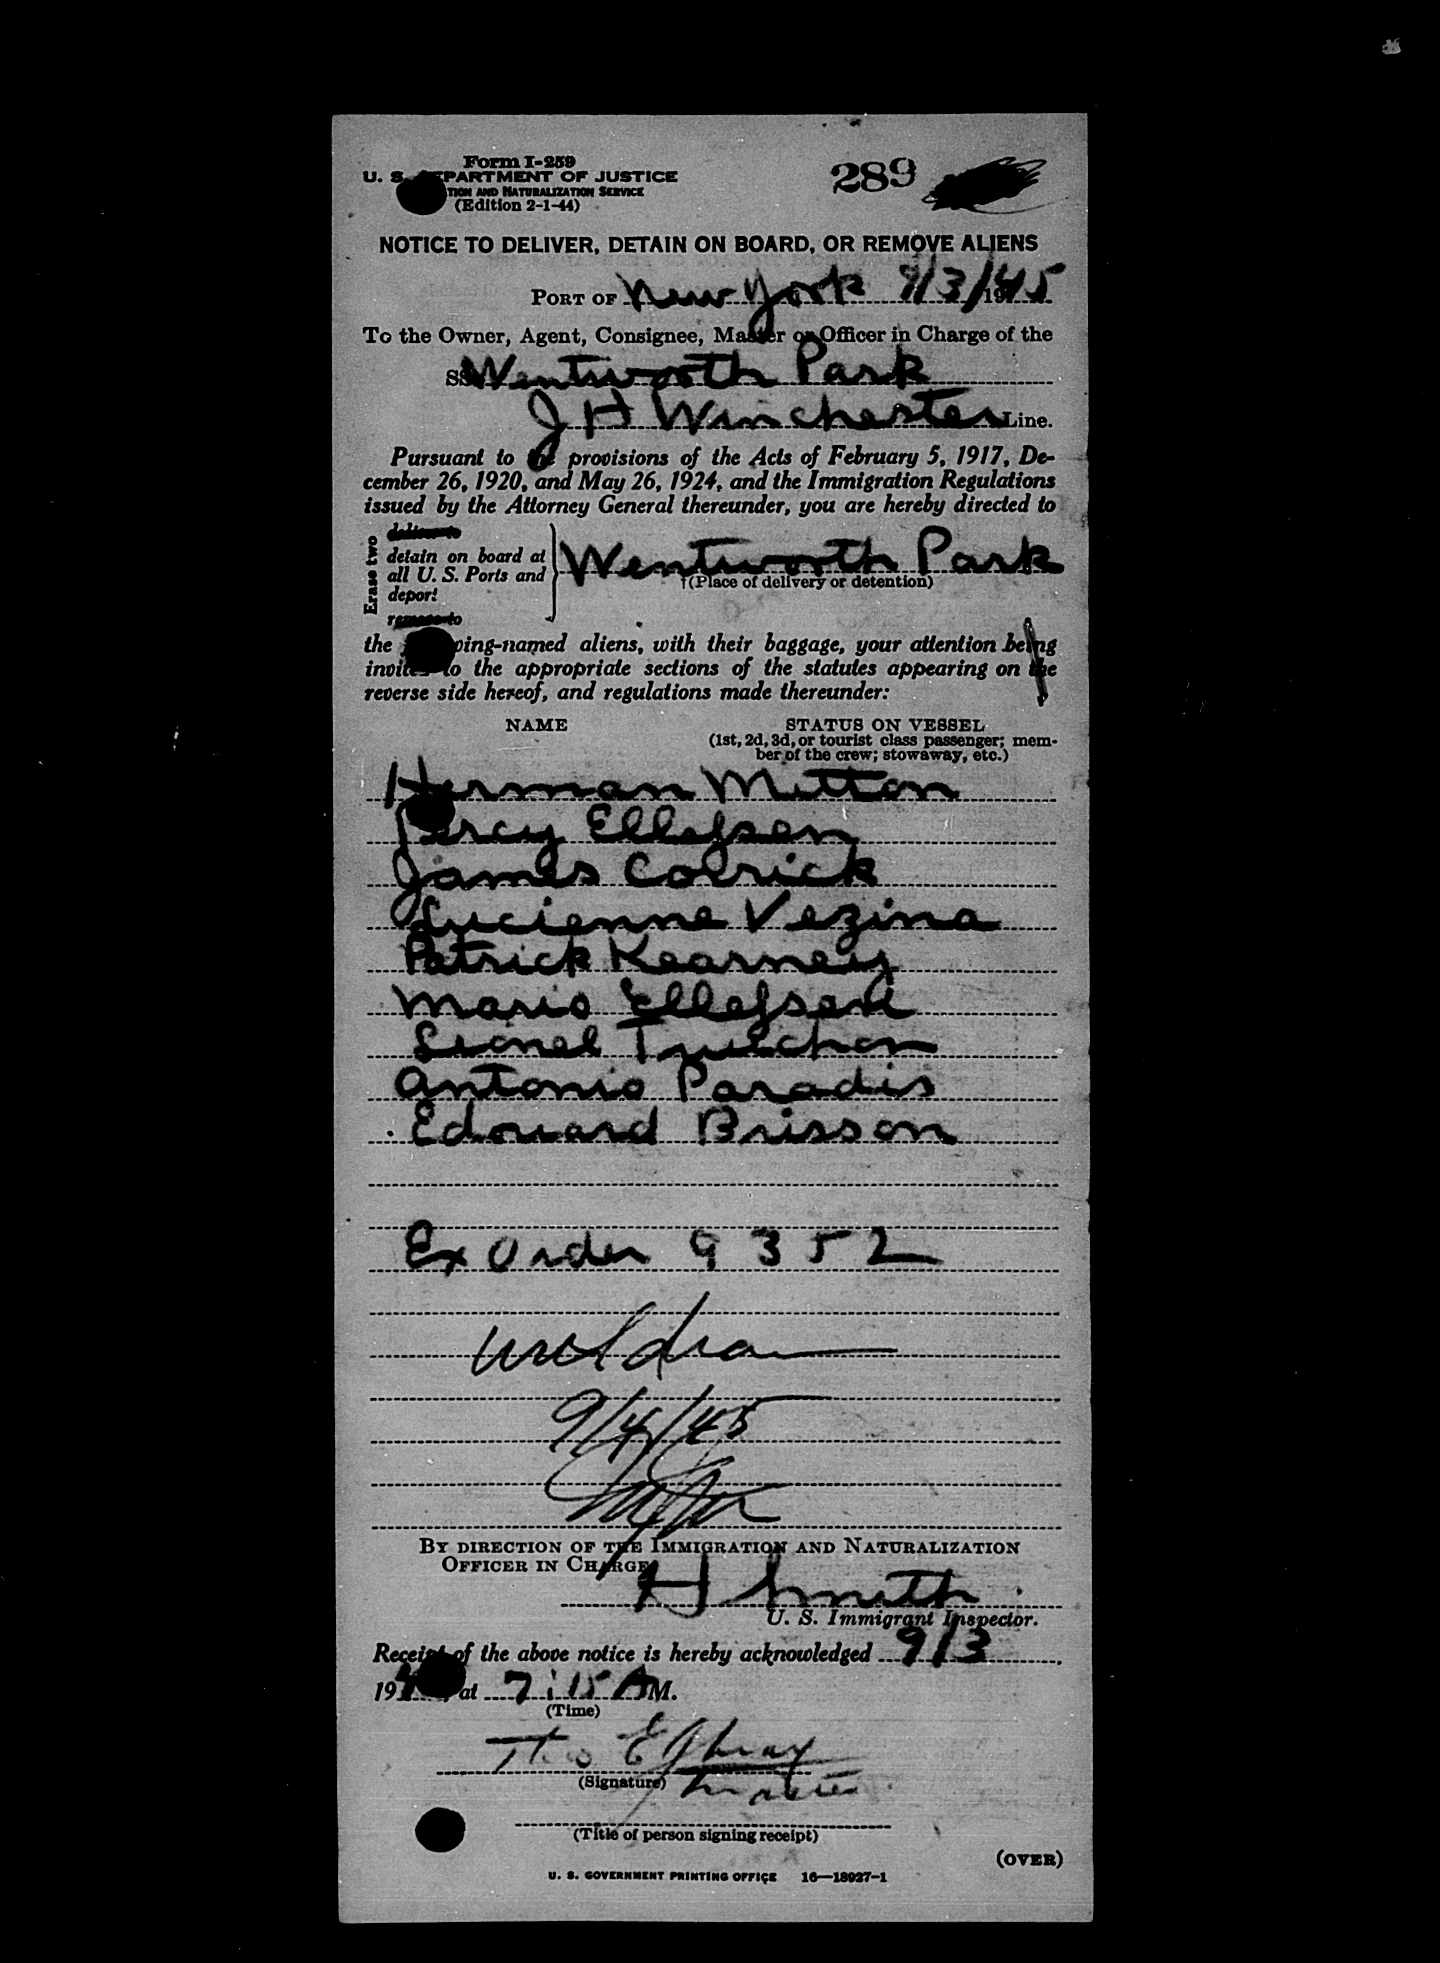 Form I-259
289
U. S. DEPARTMENT OF JUSTICE
TION AND NATURALIZATION SERVICE
(Edition 2-1-44)
NOTICE TO DELIVER, DETAIN ON BOARD, OR REMOVE ALIENS
PORT OF New York 9/3/1945
To the Owner, Agent, Consignee, Master or Officer in Charge of the
SS Wentworth Park
J H Winchester Line.
Pursuant to the provisions of the Acts of February 5, 1917, De-
cember 26, 1920, and May 26, 1924, and the Immigration Regulations
issued by the Attorney General thereunder, you are hereby directed to
Erase two
deliver to
detain on board at
all U. S. Ports and
deport
remove to
Wentworth Park
†(Place of delivery or detention)
the following-named aliens, with their baggage, your attention being
invited to the appropriate sections of the statutes appearing on the
reverse side hereof, and regulations made thereunder:
NAME STATUS ON VESSEL
(1st, 2d, 3d, or tourist class passenger; mem-
ber of the crew; stowaway, etc.)
Herman Mitton
Percy Ellefsen
James Colrick
Lucienne Vezina
Patrick Kearney
Mario Ellefsen
Lionel
Antonio Paradis
Edouard Brisson
Ex Order 9352
9/4/45
BY DIRECTION OF THE IMMIGRATION AND NATURALIZATION
OFFICER IN CHARGE
H Smith
U. S. Immigrant Inspector.
Receipt of the above notice is hereby acknowledged 9/3,
194, at 7:15 AM.
(Time)
(Signature) Master
(Title of person signing receipt)
(OVER)
U. S. GOVERNMENT PRINTING OFFICE 16—18027-1